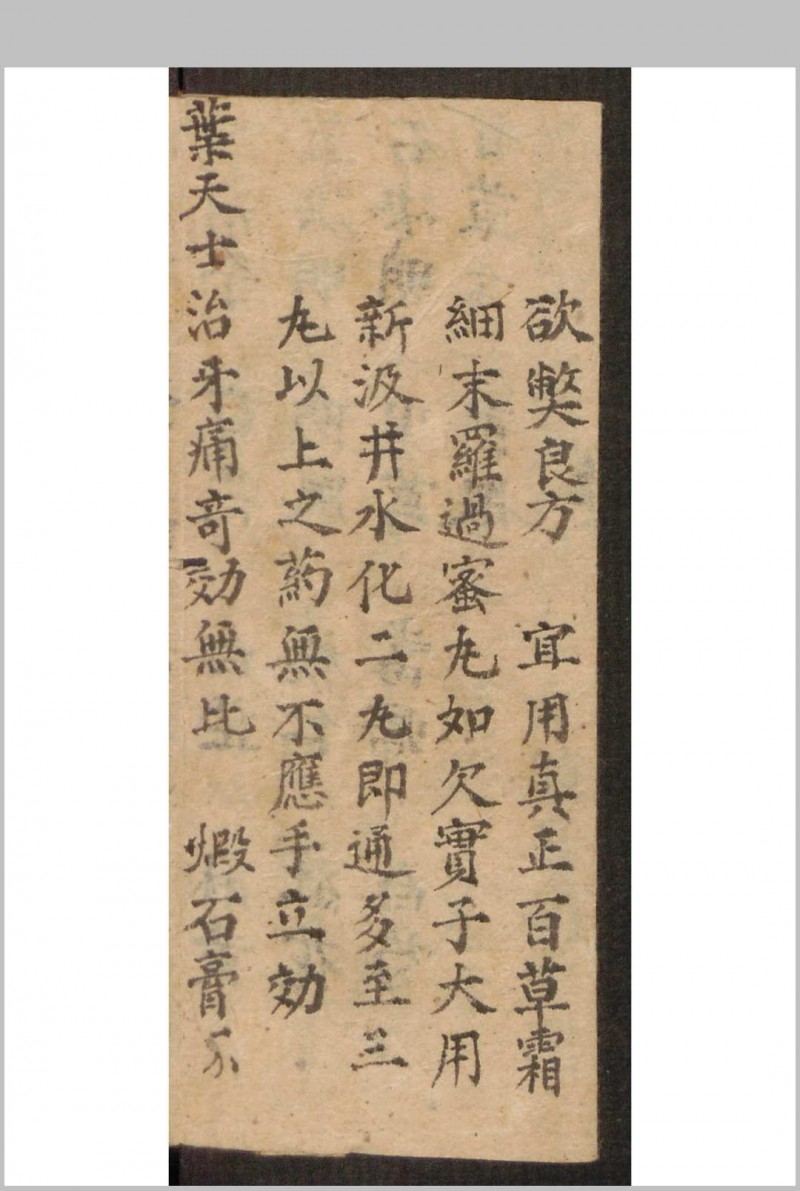 欲獘良方　宜用真正百草霜
細末羅過蜜丸如欠實子大用
新汲井水化二丸即通多至三
丸以上之药無不應手立効
葉天士治牙痛竒効無比　煆石膏